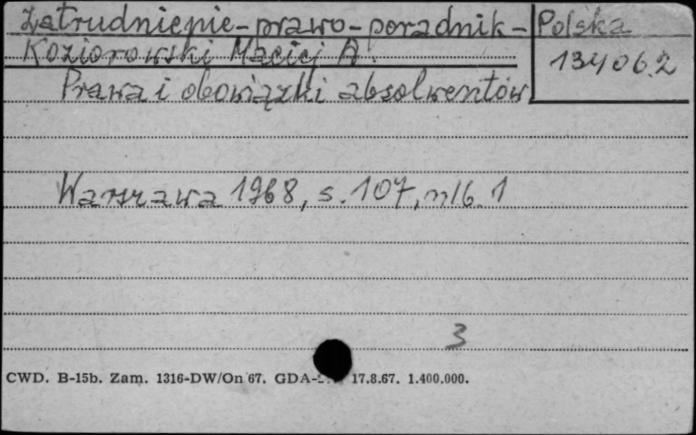 Zatrudnienie-prawo-poradnik- Polska
Koziorowski Maciej A. 134062
Prawa i obowiązki absolwentów
Warszawa 1968, s. 107, nlb. 1
3
CWD. B-15b. Zam. 1316-DW/On 67. GDA- 17.8.67. 1.400.000.